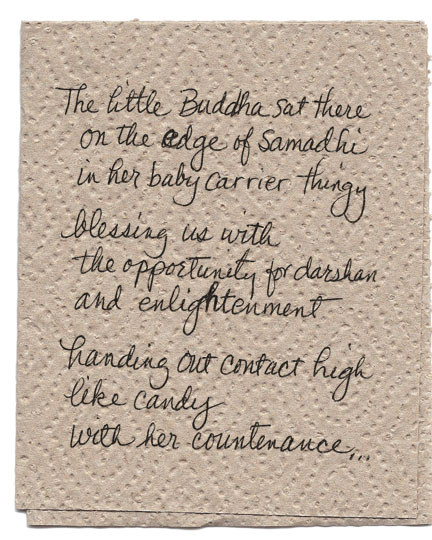 The little Buddha sat there
on the edge of Samadhi
in her baby carrier thingy
blessing us with
the opportunity for darshan
and enlightenment
handing out contact high
like candy
with her countenance...